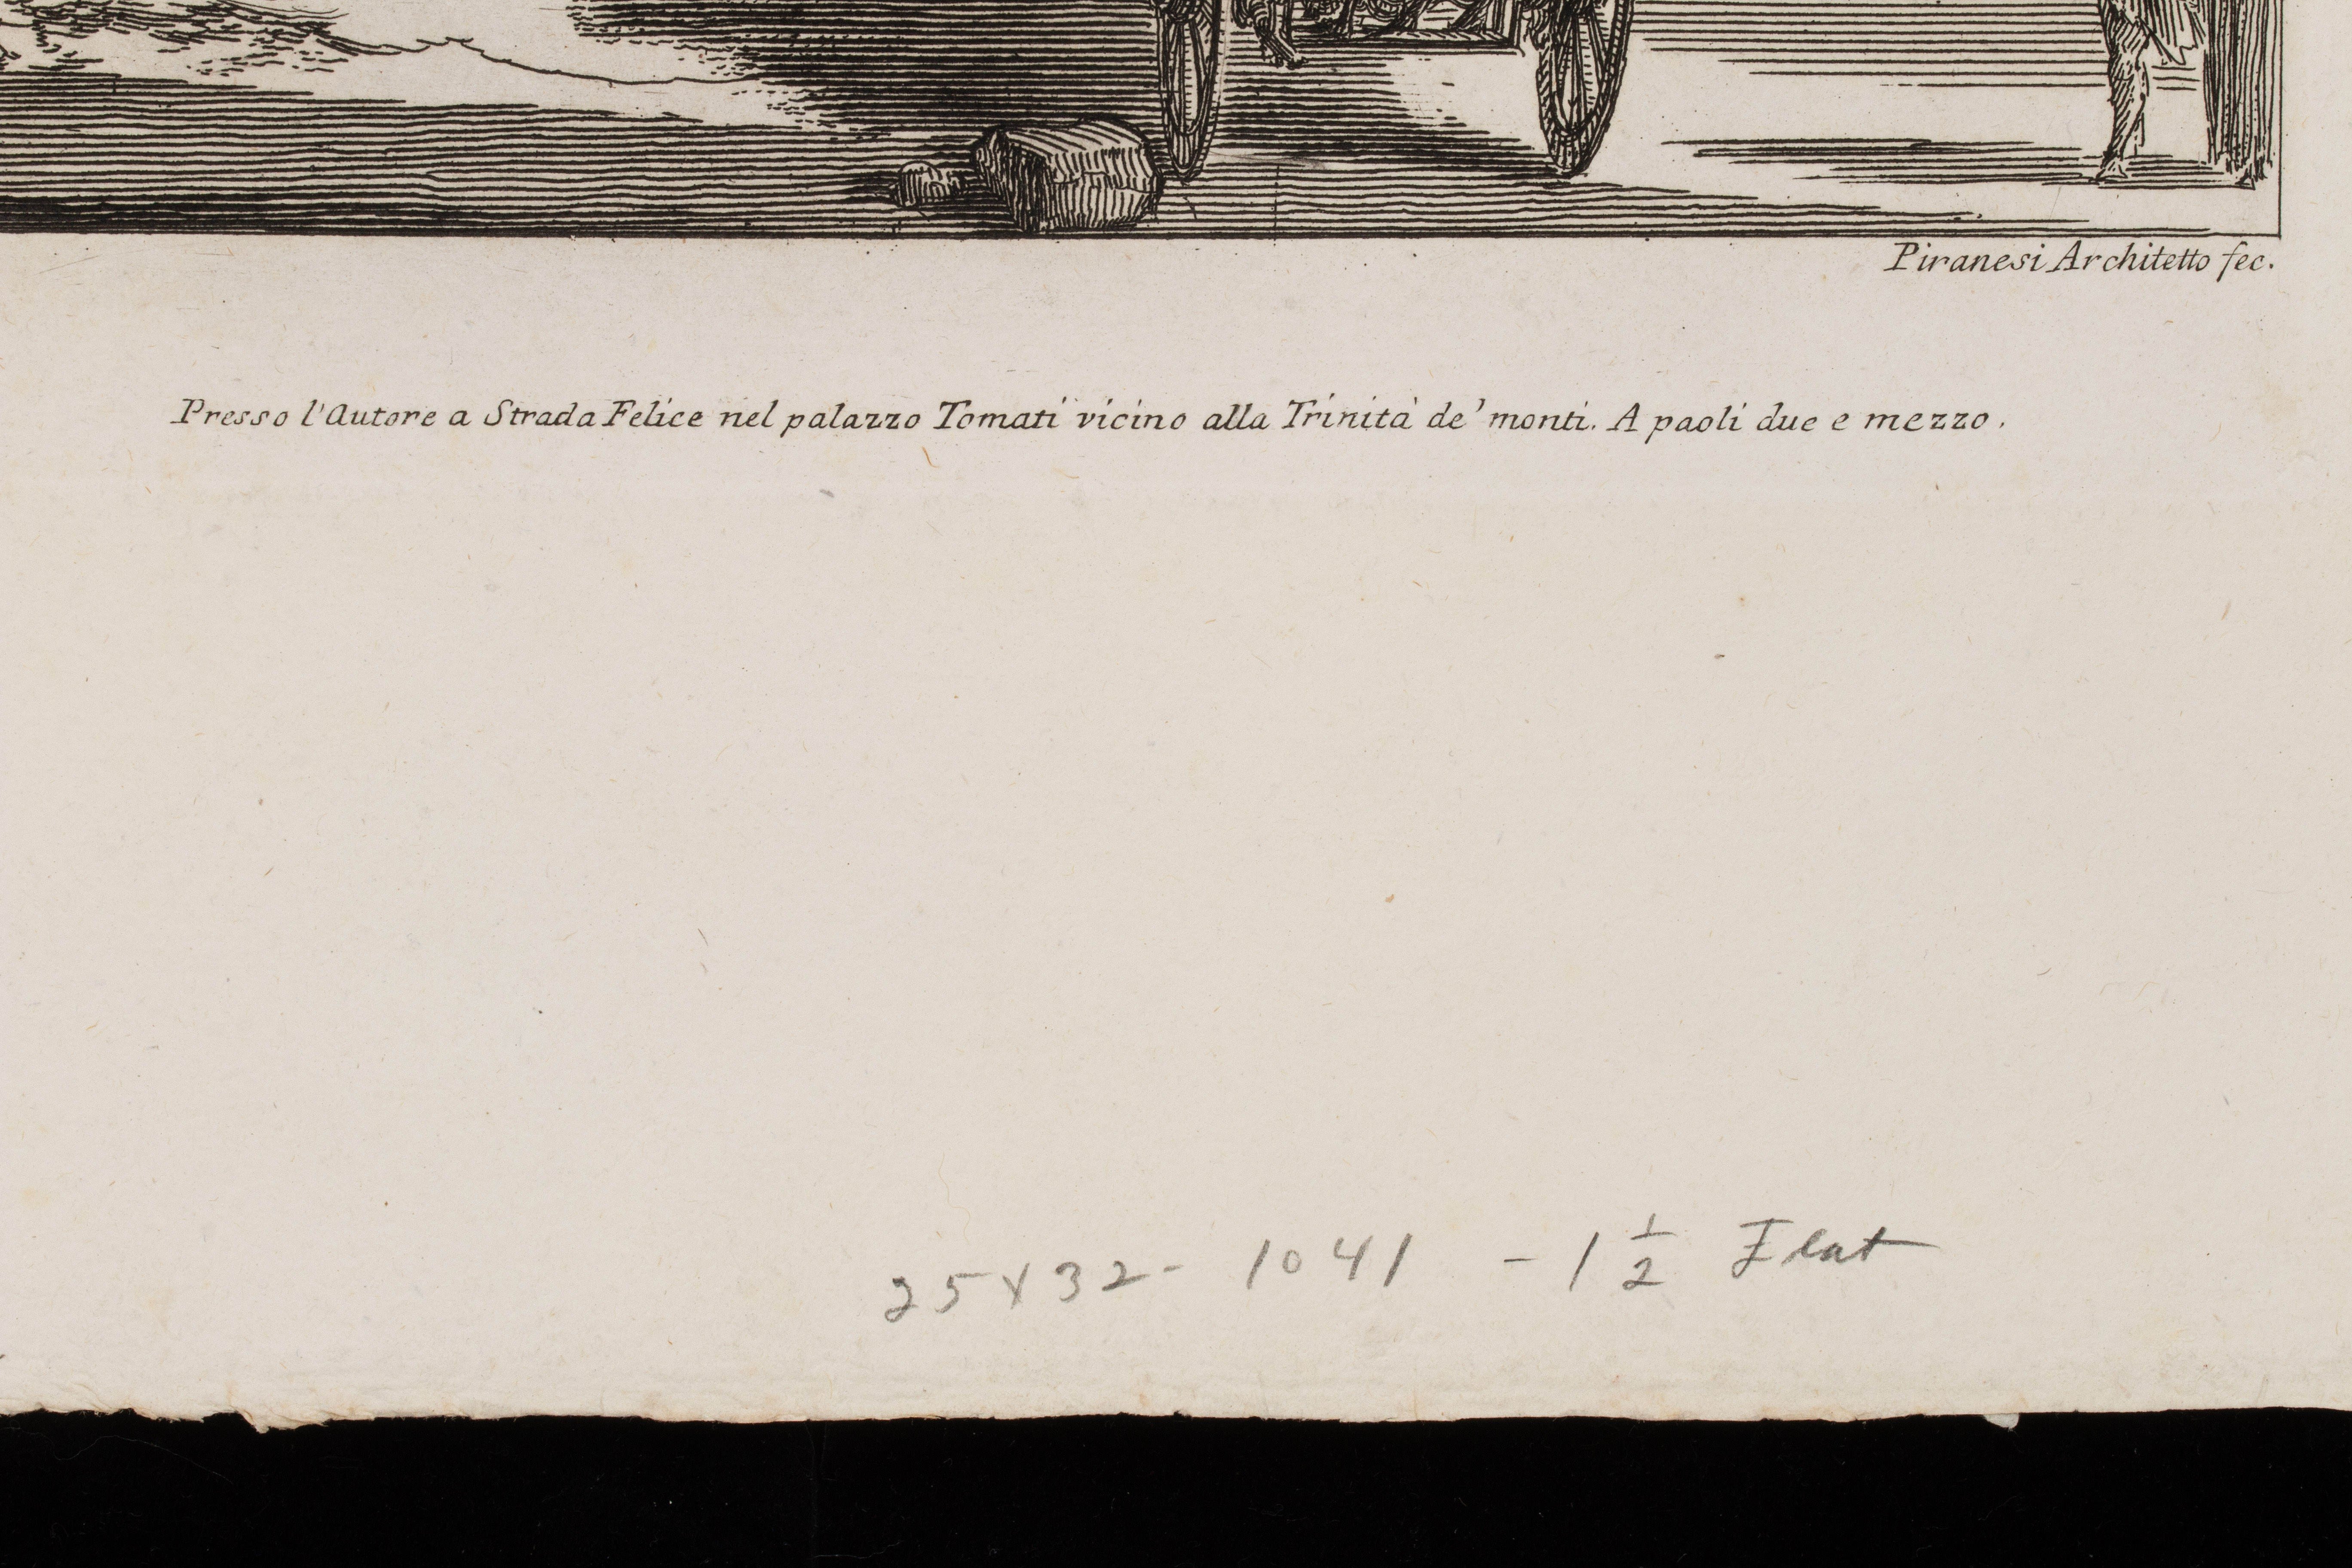 Piranesi Architetto fec.
Presso l'Autore a Strada Felice nel palazzo Tomati vicino alla Trinità de' monti. A paoli due e mezzo.
25 x 32 - 1041 - 1 1/2 Flat